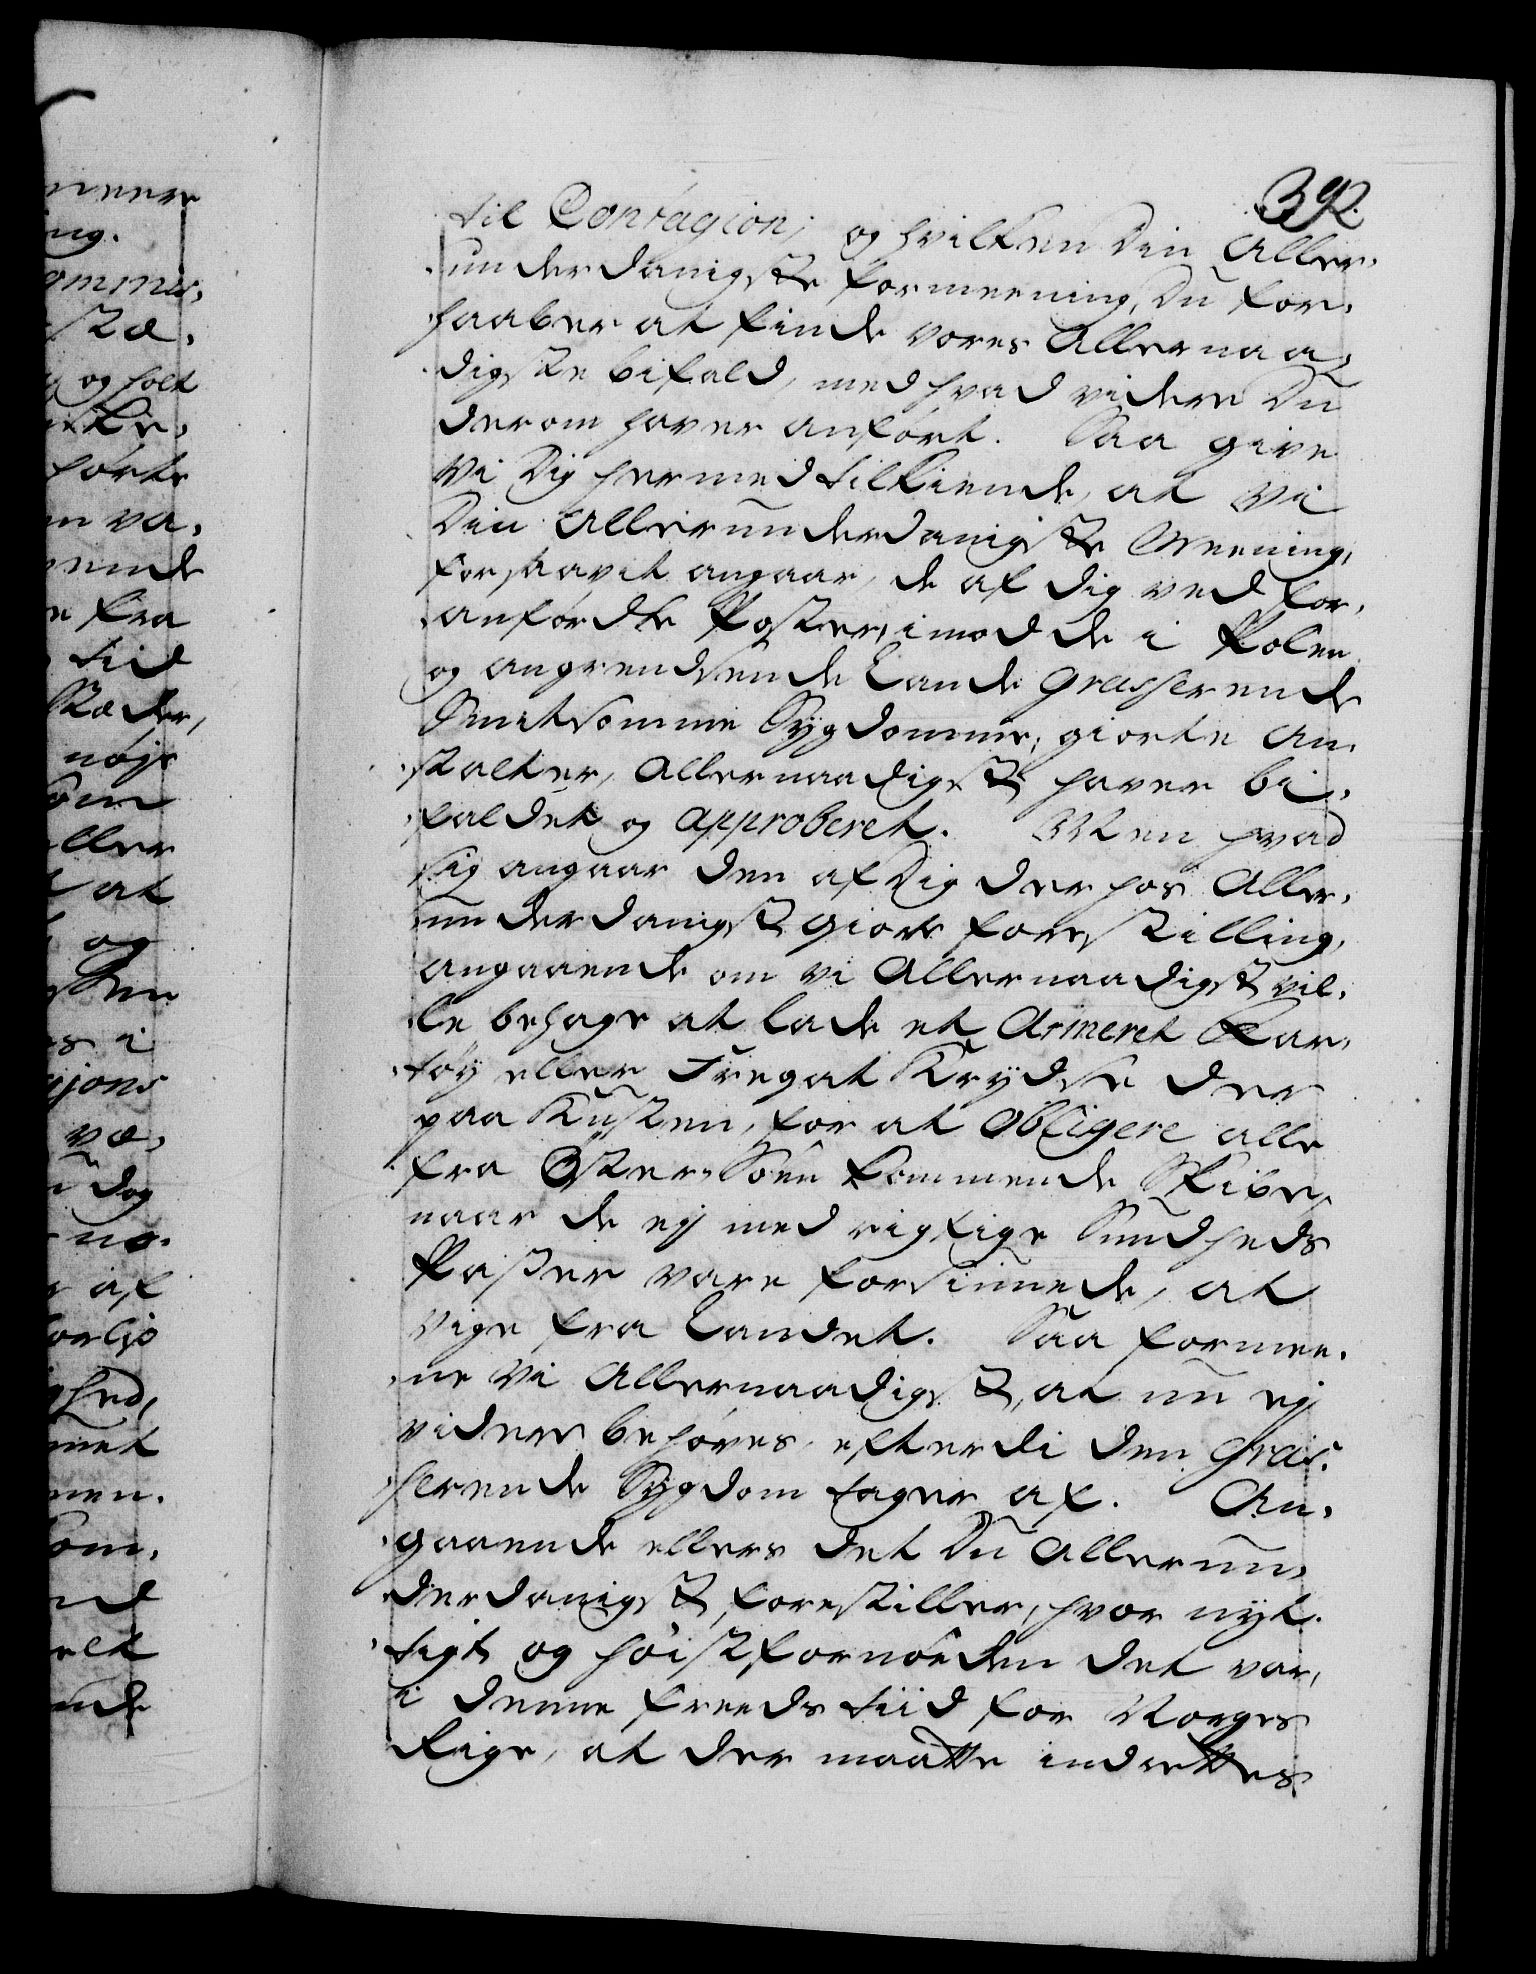 392.
til Contagion; og hvilken Din Aller,
underdanigste formeening, Du for,
haaber at finde vores Allernaa,
digste bifald, med hvad videre Du
derom haver anført. Saa give
Vi Dig hermed tilkiende, at Vi
Din Allerunderdanigste Meening,
forsaavit angaar, de af Dig ved for,
anførdte Poster, imod de i Polen
og angrendsende Lande Grasserende
Smitsomme Sygdomme, giorte An,
stalter, Allernaadigst haver bi,
faldet og approberet. Men hvad
sig angaar den af Dig derhos Aller,
underdanigst giorte forestilling,
angaaende om Vi Allernaadigst vil,
le behage at lade et Armeret Far,
tøy eller Fregat Krydse der
paa Kusten, for at Obligere alle
fra Øster-Søen kommende Skibe,
naar de ej med rigtige Sundheds
Passer vare forsiunede, at
vige fra Landet. Saa formee,
ne Vi Allernaadigst, at nu ej
videre behøves, efterdi den Gras,
serende Sygdom tager af. An,
gaaende ellers det Du Allerun,
derdanigst forestiller, hvor nyt,
tigt og høist fornøden det var,
i denne freeds tiid for Norges
Rige, at der maatte indrettes